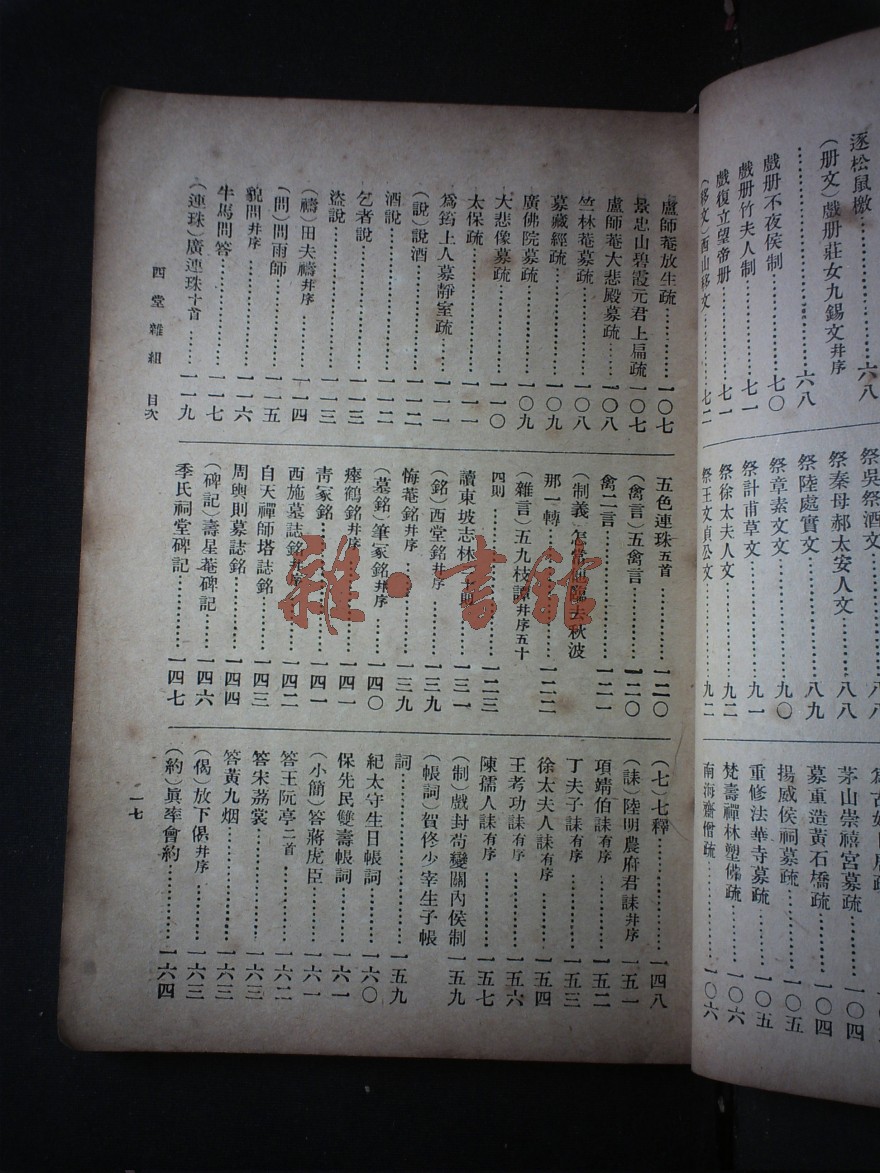 逐松鼠檄……六八
(册文)戲册莊女九錫文幷序
……六八
戲册不夜侯制……七〇
戲册竹夫人制……七一
戲復立望帝册……七一
(移文)西山移文……七二
祭吳祭酒文……八八
祭秦母郝太安人文……八八
祭陸處實文……八九
祭章素文文……九〇
祭計甫草文……九一
祭徐太夫人文……九二
祭王文貞公文……九二
茅山崇禧宮募疏……一〇四
募重造黃石橋疏……一〇四
揚威侯祠募疏……一〇五
重修法華寺募疏……一〇五
梵壽禪林塑佛疏……一〇六
南海齋僧疏……一〇六
盧師菴放生疏……一〇七
景忠山碧霞元君上扁疏……一〇七
盧師菴大悲殿募疏……一〇八
竺林菴募疏……一〇八
募藏經疏……一〇九
廣佛院募疏……一〇九
大悲像募疏……一一〇
太保疏……一一一
爲筠上人募靜室疏……一一一
(說)說酒……一一二
酒說……一一二
乞者說……一一三
盜說……一一三
(禱)田夫禱幷序……一一四
(問)問雨師……一一五
貌問幷序……一一六
牛馬問答……一一七
(連珠)廣連珠十首……一一九
五色連珠五首……一二〇
(禽言)五禽言……一二〇
禽二言……一二一
(制義)怎當他臨去秋波
那一轉……一二二
(雜言)五九枝譚幷序五十
四則……一二三
讀東坡志林……一三一
(銘)西堂銘幷序……一三九
悔菴銘幷序……一三九
(墓銘)筆冢銘幷序……一四〇
瘞鶴銘幷序……一四一
靑冢銘……一四一
西施墓誌銘幷序……一四二
自天禪師塔誌銘……一四三
周輿則墓誌銘……一四四
(碑記)壽星菴碑記……一四六
季氏祠堂碑記……一四七
(七)七釋……一四八
(誄)陸明農府君誄幷序……一五一
項靖伯誄有序……一五二
丁夫子誄有序……一五三
徐太夫人誄有序……一五四
王考功誄有序……一五六
陳孺人誄有序……一五七
(制)戲封苟變關內侯制……一五九
(帳詞)賀佟少宰生子帳
詞……一五九
紀太守生日帳詞……一六〇
保先民雙壽帳詞……一六一
(小簡)答蔣虎臣……一六一
答王阮亭二首……一六二
答宋荔裳……一六三
答黃九烟……一六三
(偈)放下偈幷序……一六三
(約)眞率會約……一六四
四堂雜組 目次
一七
雜·書館